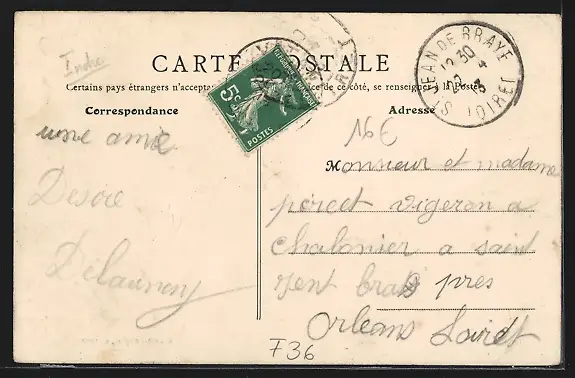 Indre
CARTE POSTALE
Certains pays étrangers n'accepte de ce côté, se renseigner à la Poste
Correspondance
Adresse
5c
POSTES
ST JEAN DE BRAYE
12 30
22 - 4
13
LOIRET
16 €
une amie
Desire
Delaunay
Monsieur et madame
percet vigeron a
chalonier a saint
jent brais pres
Orleans Loiret
F36